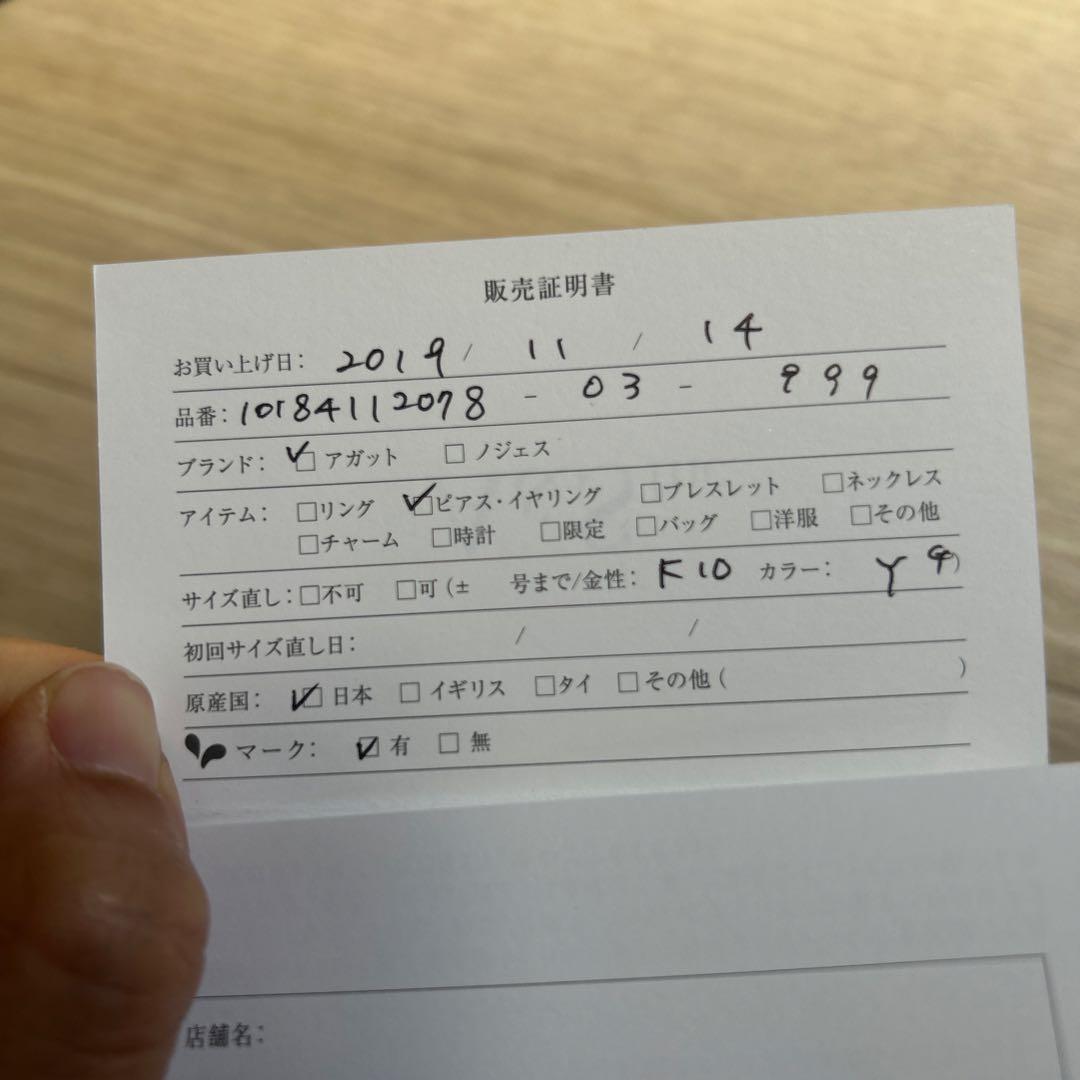 販売証明書
お買い上げ日: 2019 / 11 / 14
品番: 10184112078 - 03 - 999
ブランド: ☑アガット □ノジェス
アイテム: □リング ☑ピアス・イヤリング □ブレスレット □ネックレス
□チャーム □時計 □限定 □バッグ □洋服 □その他
サイズ直し: □不可 □可 (± 号まで/金性: K10 カラー: YG)
初回サイズ直し日: / /
原産国: ☑日本 □イギリス □タイ □その他 ( )
マーク: ☑有 □無
店舗名: